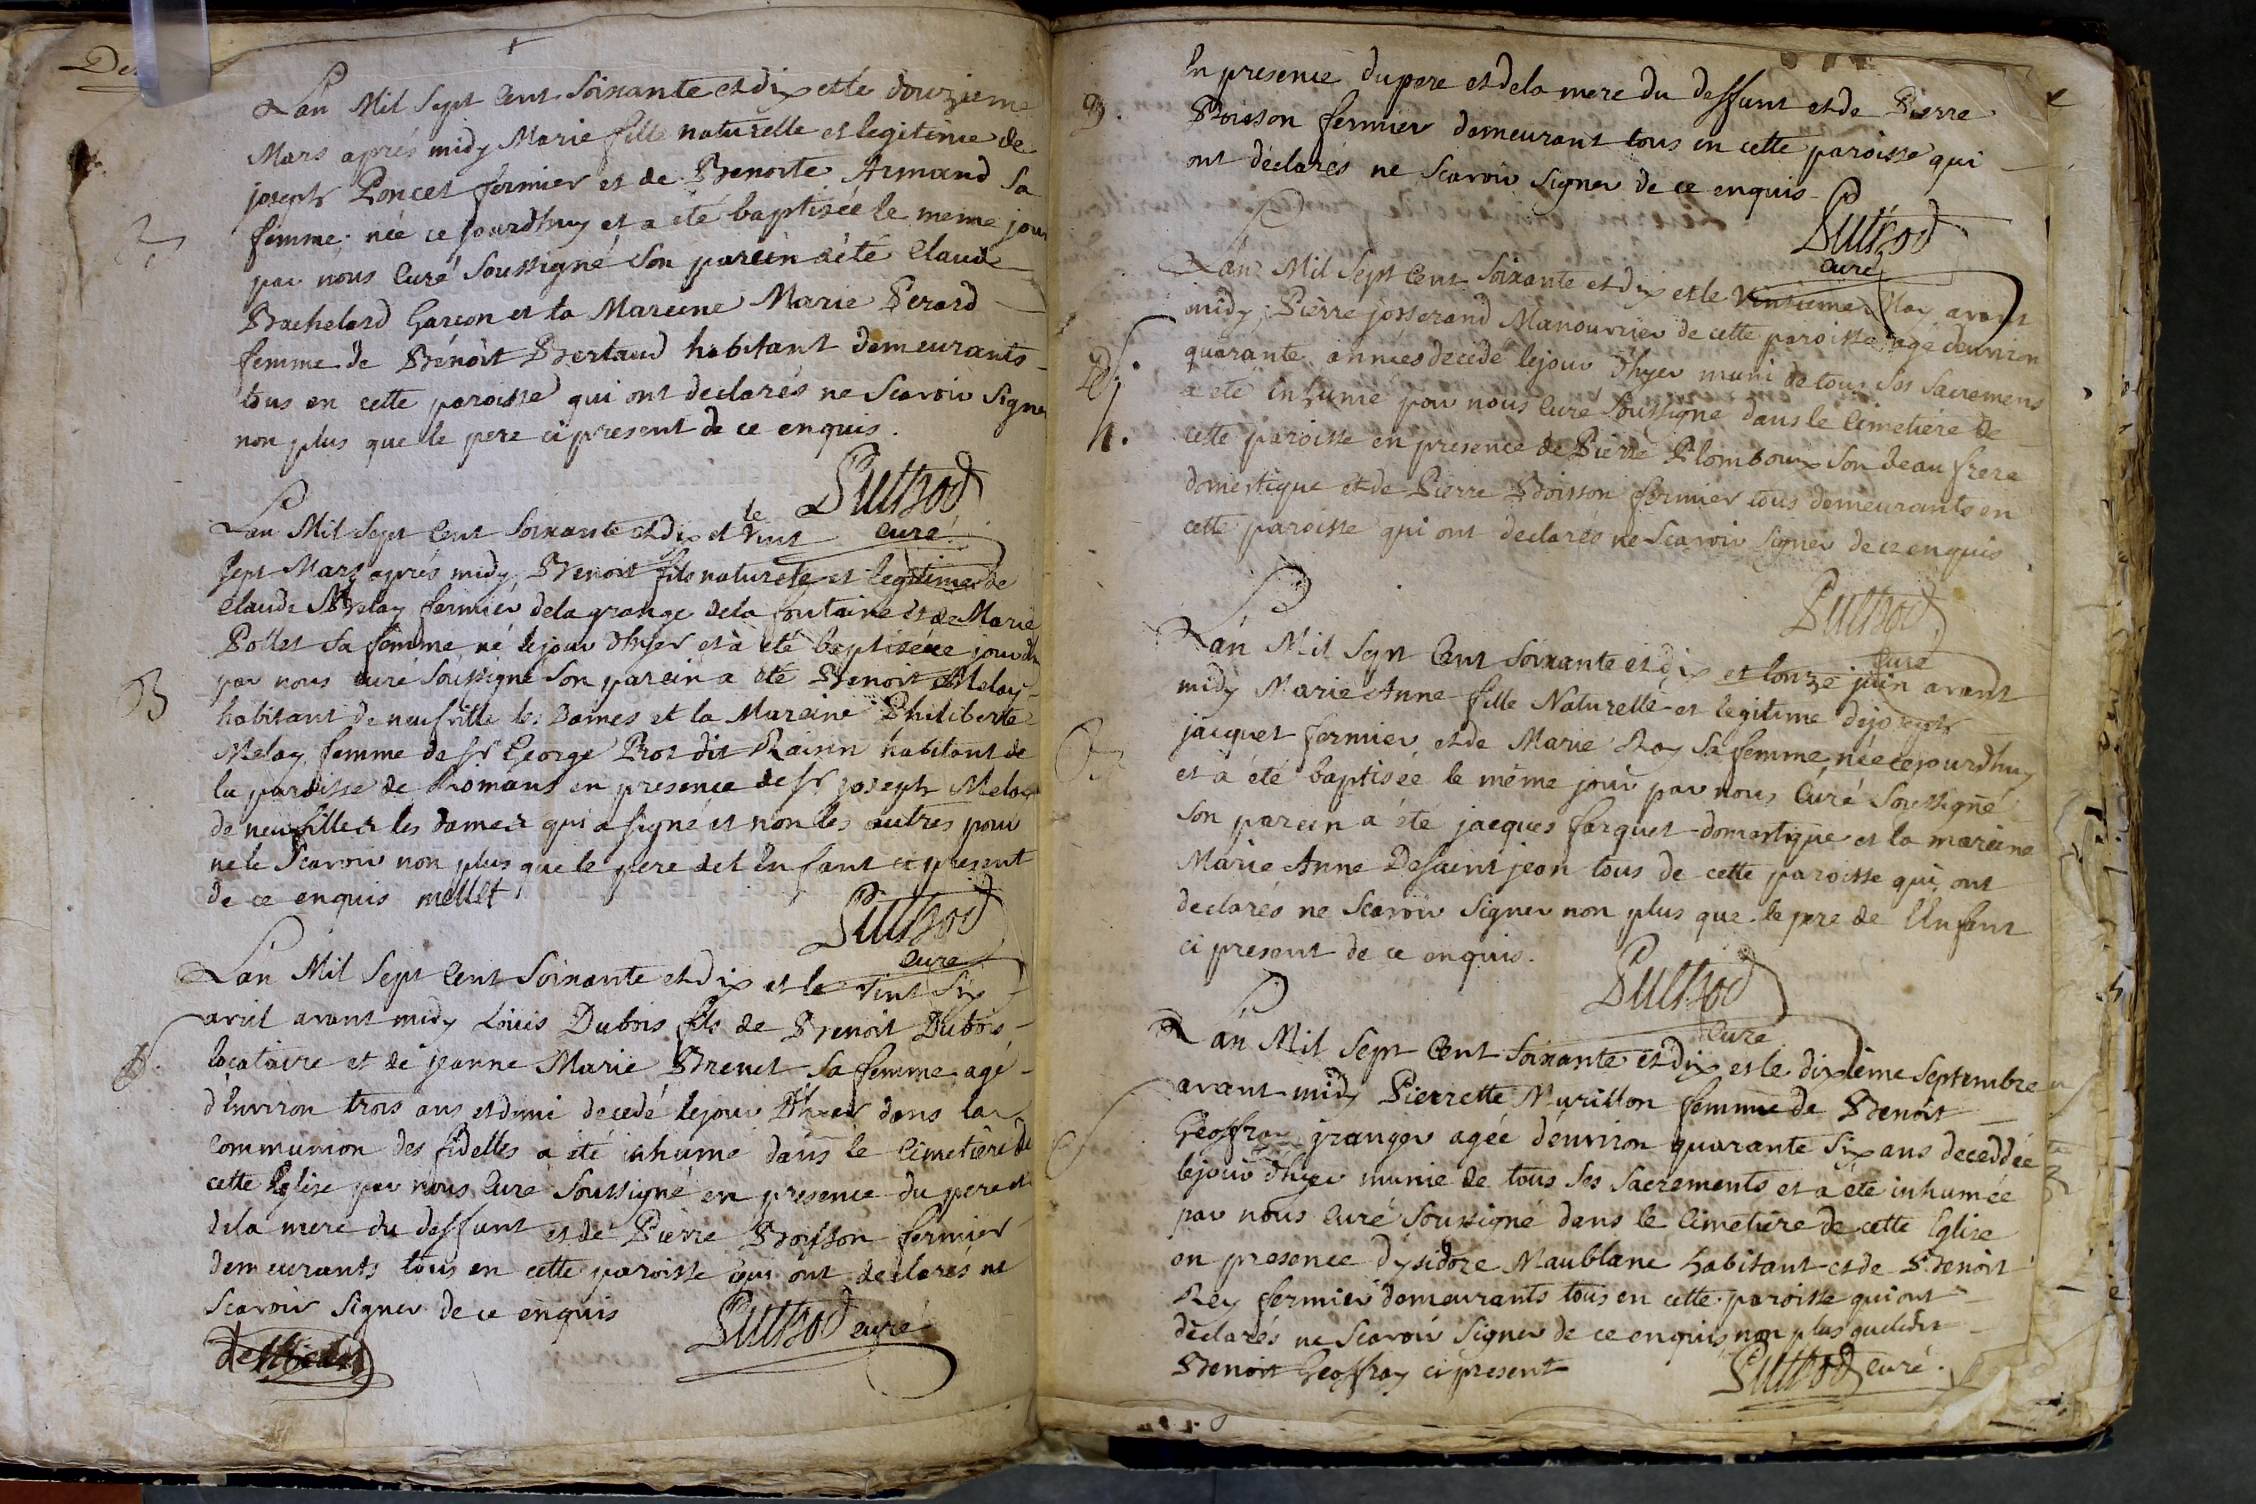 Lan Mil Sept Cent Soixante et dix et le douzieme
Mars aprés midy Marie fille naturelle et legitime de
joseph Poncet fermier et de Benoite Armand Sa
femme née ce jourdhuy et a eté baptiseé le meme jour
par nous Curé Soussigné Son parein a été Claude
Bachelard Garçon et la Mareine Marie Perard
femme de Bénoit Bertaud habitant demeurants
tous en cette paroisse qui ont declarés ne Scavoir Signer
non plus que le pere ci present de ce enquis.
Puthod
curé
Lan Mil Sept Cent Soixante et dix et le vint
Sept Mars aprés midy Benoit fils naturele et legitime de
Claude Melay fermier de la grange de la fontaine et de Marie
Pollet Sa femme né le jour dhyer et à eté baptisé ce jour
par nous Curé Soussigné Son parein a eté Benoit Melay
habitant de neufville les Dames et la Mareine Philiberte
Melay femme de Sr George Prost dit Raisin habitant de
la paroisse de Romans en presence de Sr joseph Melay
de neufville les dames qui a signé et non les autres pour
ne le Scavoir non plus que le pere de l Enfant ci present
de ce enquis mellet
Puthod
Curé
Lan Mil Sept Cent Soixante et dix et le vint Six
avril avant midy Loüis Dubois fils de Benoit Dubois
locataire et de jeanne Marie Brevet Sa femme agé
d'Environ trois ans et demi decedé le jour dhyer dans la
Communion des fidelles a été inhumé dans le Cimetiére de
cette Eglise par nous Curé Soussigné en presence du pere et
de la mere du deffunt et de Pierre Boisson fermier
demeurants tous en cette paroisse qui ont declarés ne
Scavoir Signer de ce enquis
Puthod curé
En presence du pere et de la mere du deffunt et de Pierre
Boisson fermier demeurant tous en cette paroisse qui
ont déclarés ne Scavoir Signer de ce enquis
Puthod
curé
Lan Mil Sept Cent Soixante et dix et le Vintieme May avant
midy Pierre josserand Manouvrier de cette paroisse agé d'environ
quarante années decedé le jour d'hyer muni de tous Ses Sacremens
a eté Inhumé par nous Curé Soussigné dans le Cimetiére de
cette paroisse en presence de Pierre Plomboux Son beau frere
domestique et de Pierre Boisson fermier tous demeurants en
cette paroisse qui ont declarés ne Scavoir Signer de ce enquis
Puthod
Curé
Lan Mil Sept Cent Soixante et dix et lonze juin avant
midy Marie Anne fille Naturelle et legitime de joseph
jacquet fermier et de Marie Roy Sa femme née ce jourdhuy
et a été baptisée le même jour par nous Curé Soussigné
Son parein a été jacques farquet domestique et la mareine
Marie Anne Desaint jean tous de cette paroisse qui ont
declarés ne Scavoir Signer non plus que le pere de l'Enfant
ci present de ce enquis.
Puthod
Curé
Lan Mil Sept Cent Soixante et dix et le dixième Septembre
avant midy Pierrette Murillon femme de Benoit
Geoffray granger agée d'environ quarante Six ans deceddée
le jour dhyer munie de tous Ses Sacrements et a été inhumée
par nous Curé Soussigné dans le Cimetiére de cette Eglise
en presence d'ysidore Maublanc habitant et de Benoit
Rey fermier demeurants tous en cette paroisse qui ont
déclarés ne Scavoir Signer de ce enquis non plus que ledit
Benoit Geoffray ci present
Puthod curé.